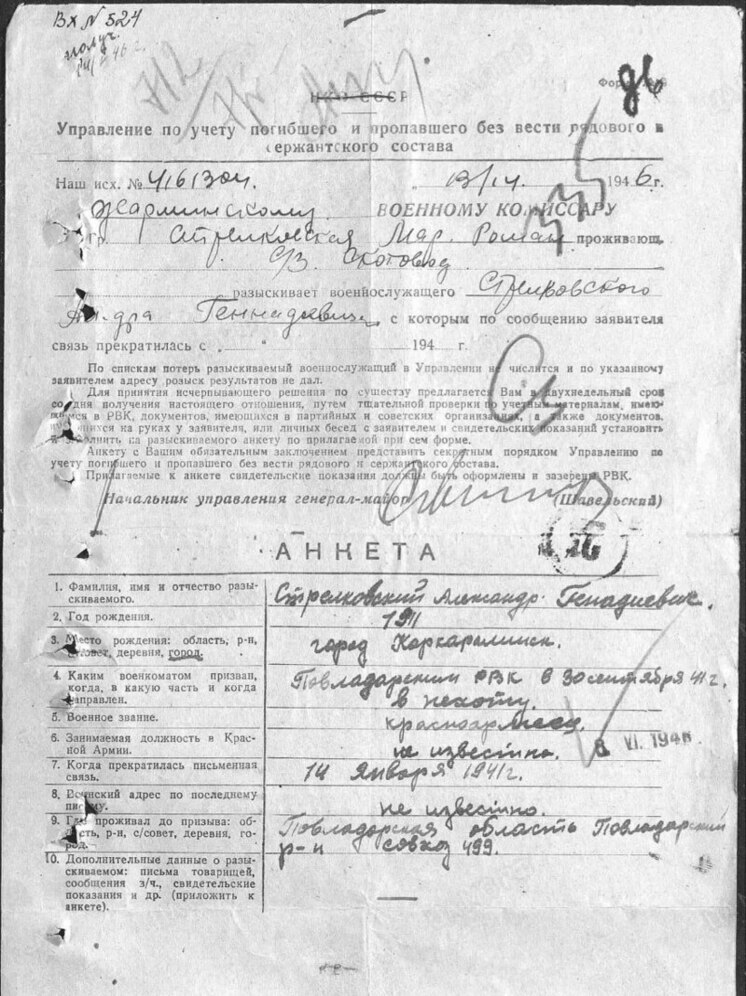 Вх № 524
получ.
46 г.
Форма
Н К О СССР
Управление по учету погибшего и пропавшего без вести рядового и
сержантского состава
Наш исх. № 416134. „ 1946 г.
Жарминскому ВОЕННОМУ КОМИССАРУ
гр. Стрелковская Мар. Роман проживающ.
С/З. Скотовод
разыскивает военнослужащего Стрелковского
Геннадьевича с которым по сообщению заявителя
связь прекратилась с „ " 194 г.
По спискам потерь разыскиваемый военнослужащий в Управлении не числится и по указанному
заявителем адресу розыск результатов не дал.
Для принятия исчерпывающего решения по существу предлагается Вам в двухнедельный срок
со дня получения настоящего отношения, путем тщательной проверки по учетным материалам, имею-
щимся в РВК, документов, имеющихся в партийных и советских организациях, а также документов,
имеющихся на руках у заявителя, или личных бесед с заявителем и свидетельских показаний установить
и заполнить на разыскиваемого анкету по прилагаемой при сем форме.
Анкету с Вашим обязательным заключением представить секретным порядком Управлению по
учету погибшего и пропавшего без вести рядового и сержантского состава.
Прилагаемые к анкете свидетельские показания должны быть оформлены и заверены РВК.
Начальник управления генерал-майор (Шавельский)
АНКЕТА
1. Фамилия, имя и отчество разы-
скиваемого. Стрелковский Александр Генадиевич.
2. Год рождения. 1911
3. Место рождения: область, р-н,
с/совет, деревня, город. город Каркаралинск.
4. Каким военкоматом призван,
когда, в какую часть и когда
направлен. Повладарским РВК в 30 сентября 41 г.
в пехоту.
5. Военное звание. красноармеец.
6. Занимаемая должность в Крас-
ной Армии. не известно.
6 VI. 1946
7. Когда прекратилась письменная
связь. 14 Января 1941 г.
8. Воинский адрес по последнему
письму. не известно.
9. Где проживал до призыва: об-
ласть, р-н, с/совет, деревня, го-
род. Повладарская область Повладарский
р-н совхоз 499.
10. Дополнительные данные о разы-
скиваемом: письма товарищей,
сообщения з/ч., свидетельские
показания и др. (приложить к
анкете).